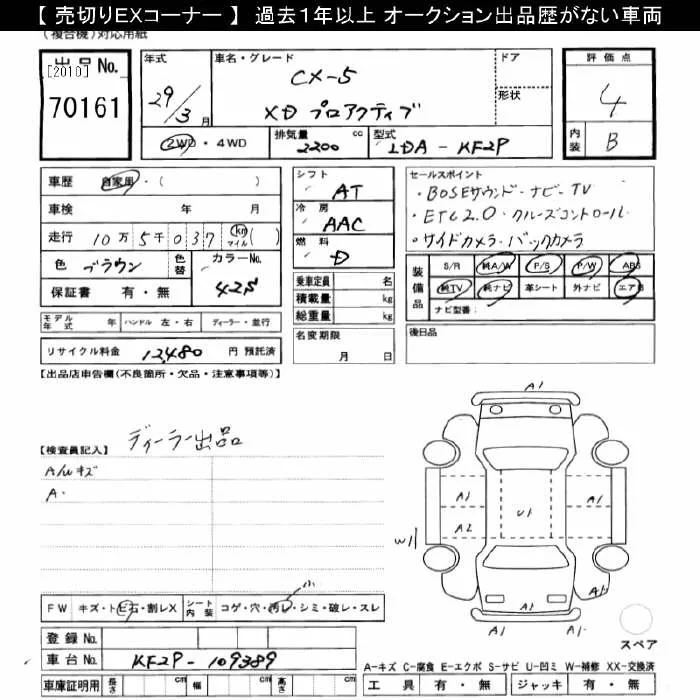 【 売切りEXコーナー 】 過去1年以上 オークション出品歴がない車両
(複合機)対応用紙
出品No. [2010] 70161
年式 29/3月
車名・グレード CX-5 XD プロアクティブ
ドア
形状
評価点 4
内装 B
2WD・4WD
排気量 2200 cc
型式 LDA-KF2P
車歴 自家用・( )
車検 年 月
走行 10万5千037 km マイル( )
色 ブラウン 色替 カラーNo. 42S
保証書 有・無
シフト AT
冷房 AAC
燃料 D
乗車定員 名
積載量 kg
総重量 kg
セールスポイント
・BOSEサウンド・ナビ・TV
・ETC2.0・クルーズコントロール・
・サイドカメラ・バックカメラ
装備品 S/R 純A/W P/S P/W ABS
純TV 純ナビ 革シート 外ナビ エアB
ナビ型番:
モデル年式 年 ハンドル 左・右 ディーラー・並行
名変期限 月 日
後日品
リサイクル料金 12,480 円 預託済
【出品店申告欄(不良箇所・欠品・注意事項等)】
ディーラー出品
【検査員記入】
A/Wキズ
A・
A1
A1 A1
A2 U1
W1
A1
A1 A1
FW キズ・トビ石・割レX シート内装 コゲ・穴・汚レ・シミ・破レ・スレ
小
スペア
登録No.
車台No. KF2P-109389
A-キズ C-腐食 E-エクボ S-サビ U-凹ミ W-補修 XX-交換済
車庫証明用 長さ cm 幅 cm 高さ cm
工具 有・無 ジャッキ 有・無